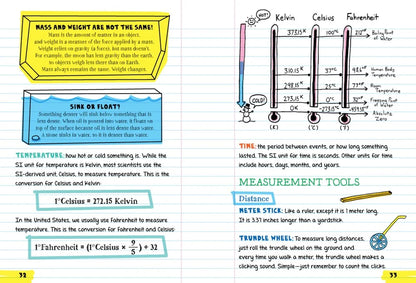 MASS AND WEIGHT ARE NOT THE SAME!
Mass is the amount of matter in an object,
and weight is a measure of the force applied by a mass.
Weight relies on gravity (a force), but mass doesn't.
For example, the moon has less gravity than the earth,
so objects weigh less there than on Earth.
Mass always remains the same. Weight changes.
SINK OR FLOAT?
Something denser will sink below something that is
less dense. When oil is poured into water, it floats on
top of the surface because oil is less dense than water.
A stone sinks in water, so it is denser than water.
TEMPERATURE: how hot or cold something is. While the
SI unit for temperature is Kelvin, most scientists use the
SI-derived unit, Celsius, to measure temperature. This is the
conversion for Celsius and Kelvin:
1°Celsius = 272.15 Kelvin
In the United States, we usually use Fahrenheit to measure
temperature. This is the conversion for Fahrenheit and Celsius:
1°Fahrenheit = (1°Celsius × 9/5) + 32
32
HOT!
COLD!
Kelvin Celsius Fahrenheit
373.15 K 100°C 212°F Boiling Point
of Water
310.15 K 37°C 98.6°F Human Body
Temperature
298.15 K 25°C 77°F Room
Temperature
273.15 K 0°C 32°F Freezing Point
of Water
0 K -273.15°C -459.67°F Absolute
Zero
(K) (°C) (°F)
TIME: the period between events, or how long something
lasted. The SI unit for time is seconds. Other units for time
include hours, days, months, and years.
MEASUREMENT TOOLS
Distance
METER STICK: Like a ruler, except it is 1 meter long.
It is 3.37 inches longer than a yardstick.
TRUNDLE WHEEL: To measure long distances,
just roll the trundle wheel on the ground and
every time you walk a meter, the trundle wheel makes a
clicking sound. Simple—just remember to count the clicks.
33